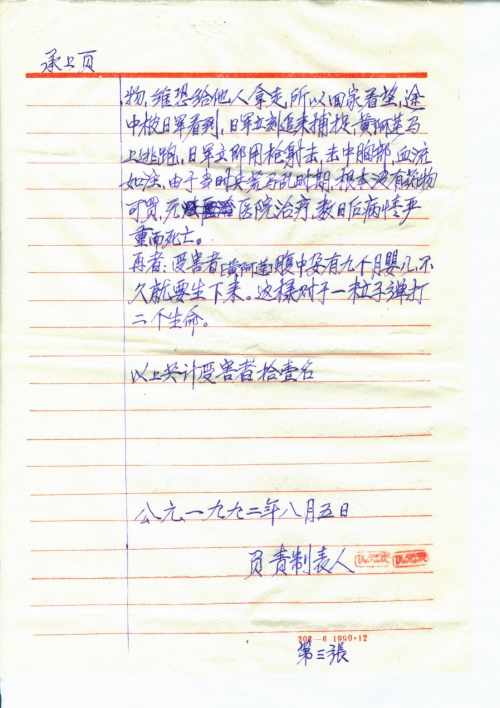 承上页
物，维恐给他人拿走，所以回家看望，途
中被日军看到，日军立刻追来捕捉，黄阿莲马
上逃跑，日军立即用枪射击，击中胸部，血流
如注，由于当时兵荒马乱时期，根本没有药物
可买，无医院治疗，数日后病情严
重而死亡。
再者：受害者（黄阿莲）腹中孕有九个月婴儿，不
久就要生下来。这样对于一粒子弹打
二个生命。
以上共计受害者拾壹名
公元一九九二年八月五日
负责制表人
207-6 1990·12
第三張